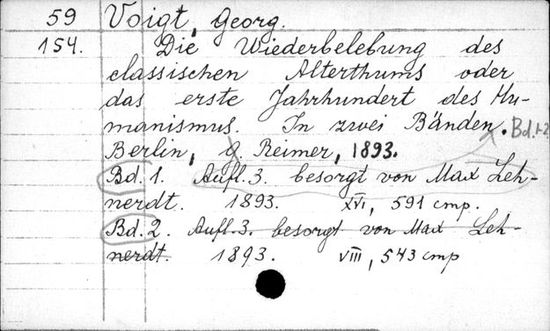 59 Voigt, Georg.
154. Die Wiederbelebung des
classischen Alterthums oder
das erste Jahrhundert des Hu-
manismus. In zwei Bänden. Bd. 1-2
Berlin, G. Reimer, 1893.
Bd. 1. Aufl. 3. besorgt von Max Leh-
nerdt. 1893. XVI, 591 стр.
Bd. 2. Aufl. 3. besorgt von Max Leh-
nerdt. 1893. VIII, 543 стр